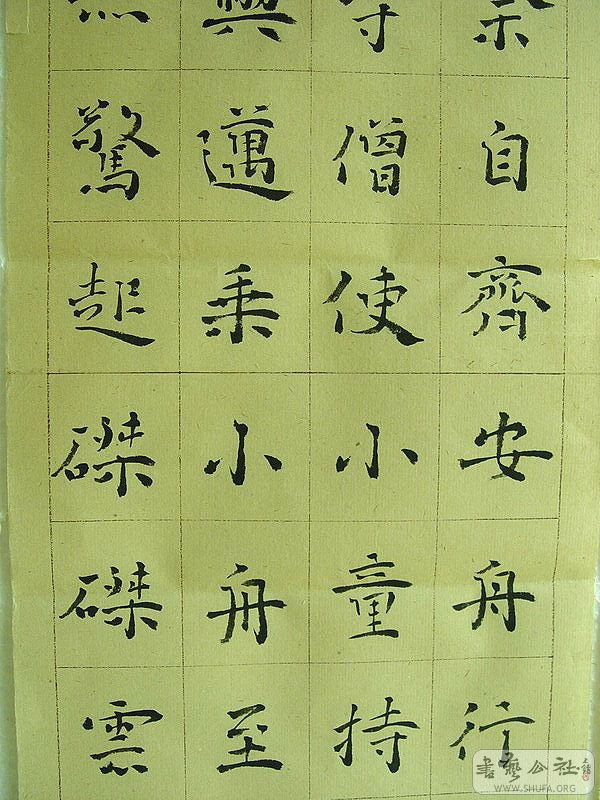 余自齊安舟行
寺僧使小童持
與邁乘小舟至
亦驚起磔磔雲
書藝公社
WWW.SHUFA.ORG